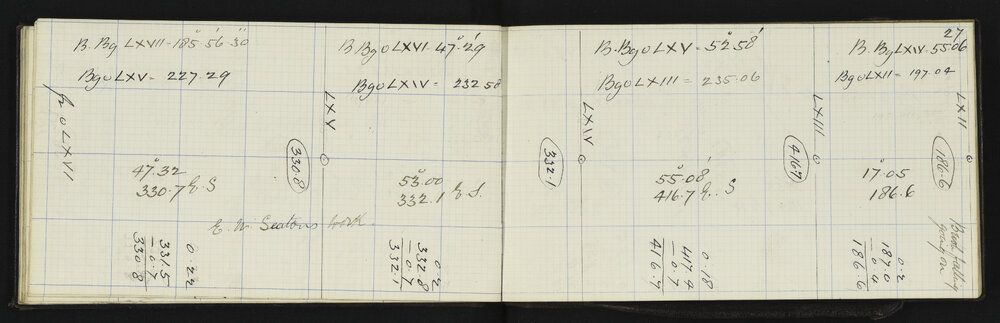 27
B. Bg LXVII = 185° 56' 30"
Bg o LXV = 227.29
B Bg o LXVI 47° 29'
Bg o LXIV = 232 58
B. Bg o LXV = 52° 58'
Bg o LXIII = 235.06
B. Bg LXIV. 55 06
Bg o LXII = 197.04
o LXVI
LXV
330.8
LXIV
332.1
LXIII
4167
LXII
186.6
47°.32
330.7 E. S
53°.00
332.1 E. S.
55°.08'
416.7 E. S
17°.05
186.6
E. W. Seatons work.
0.22
331.5
-0.7
330.8
0.2
332.8
-0.7
332.1
0.18
417.4
-0.7
416.7
0.2
187.0
-0.4
186.6
falling
going on